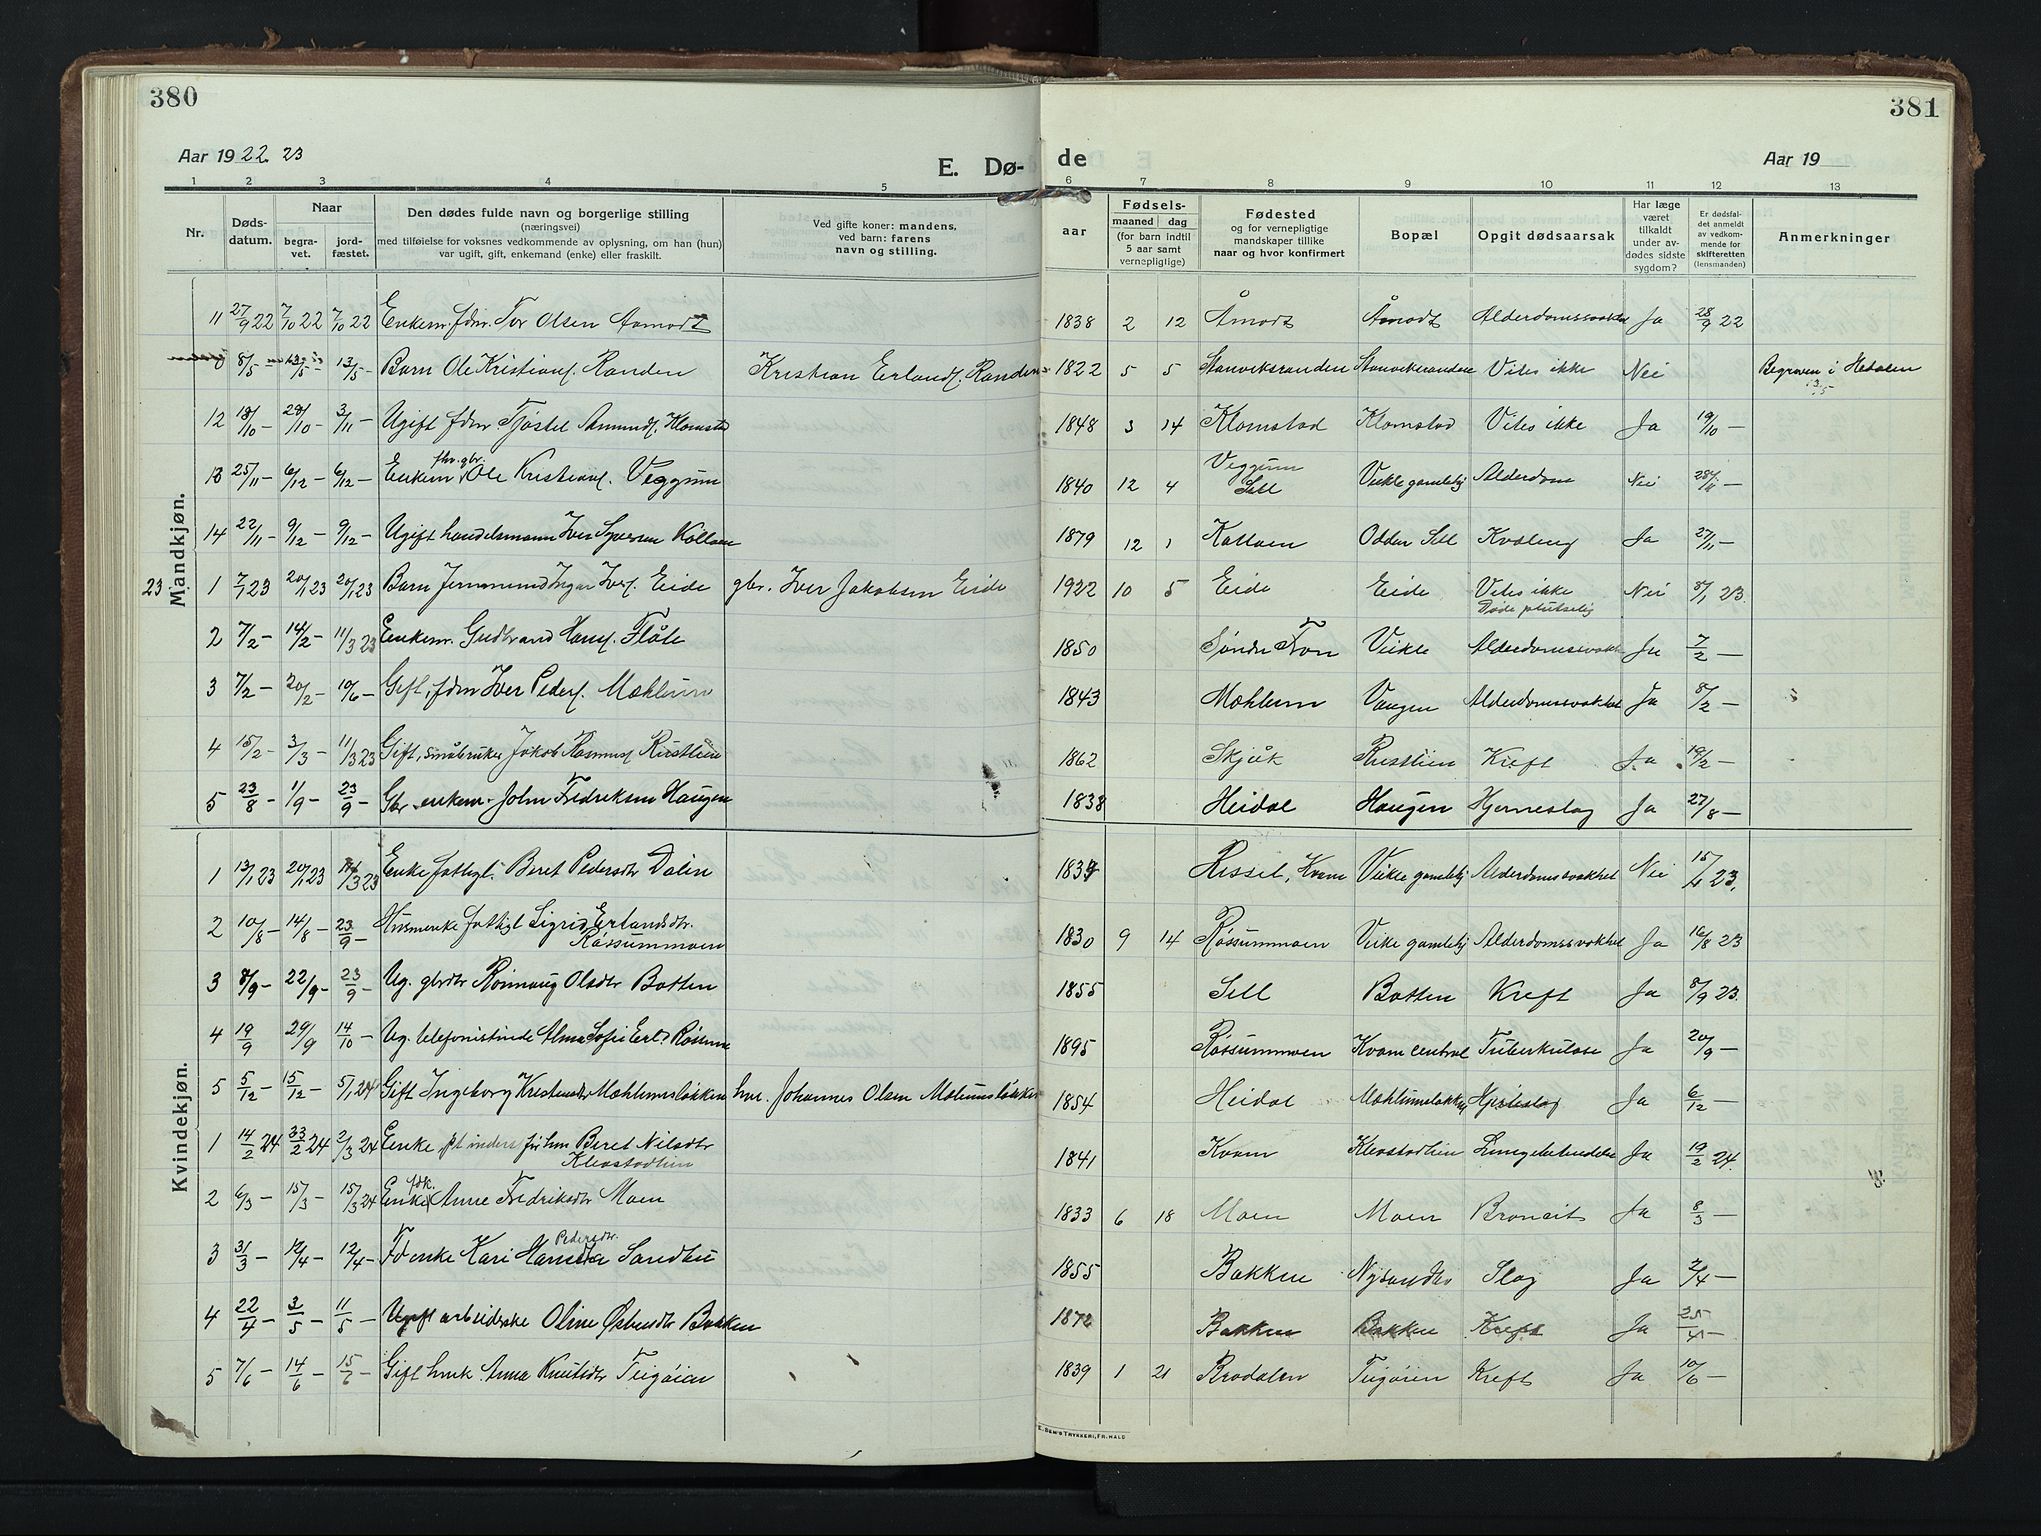 380
381
Aar 1922. 23
E. Dø-
de
Aar 19
1 2 3 4 5
6 7 8 9 10 11 12 13
Nr.
Døds-
datum.
Naar
begra-
vet.
jord-
fæstet.
Den dødes fulde navn og borgerlige stilling
(næringsvei)
med tilføielse for voksnes vedkommende av oplysning, om han (hun)
var ugift, gift, enkemand (enke) eller fraskilt.
Ved gifte koner: mandens,
ved barn: farens
navn og stilling.
aar
Fødsels-
maaned dag
(for barn indtil
5 aar samt
vernepligtige)
Fødested
og for vernepligtige
mandskaper tillike
naar og hvor konfirmert
Bopæl
Opgit dødsaarsak
Har læge
været
tilkaldt
under av-
dødes sidste
sygdom?
Er dødsfal-
det anmeldt
av vedkom-
mende for
skifteretten
(lensmanden)
Anmerkninger
Mandkjøn.
11 27/9 22 7/10 22 7/10 22 Enkem. fdm. Tor Olsen Aamodt 1838 2 12 Åmodt Åmodt Alderdomssvakhet Ja 28/9 22
8/5 13/5 13/5 – Barn Ole Kristians. Randen Kristian Erlands. Randen 1822 5 5 Stanviksranden Stanviksranden Vites ikke Nei Begraven i Hedalen
12 18/10 – 28/10 – 3/11 – Ugift fdm. Tjøstel Amunds. Klomstad 1848 3 14 Klomstad Klomstad Vites ikke Ja 19/10 –
13 25/11 – 6/12 – 6/12 – Enkem. fhv. gbr. Ole Kristians. Veggum 1840 12 4 Veggum Sell Veikle gamlehj Alderdom Nei 28/11 –
14 22/11 – 9/12 – 9/12 – Ugift handelsmann Iver Syversen Kolloen 1879 12 1 Kolloen Odden Sell Kvæling Ja 27/11 –
23 1 7/1 23 20/1 23 20/1 23 Barn Jernmund Ingar Ivers. Eide gbr. Iver Jakobsen Eide 1922 10 5 Eide Eide Vites ikke Døde plutselig Nei 8/1 23.
2 7/2 – 14/2 – 11/3 23 Enkem. Gudbrand Hans. Flåte 1850 Søndre Fron Veikle Alderdomssvakhet Ja 7/2 –
3 7/2 – 20/2 – 10/6 – Gift, fdm Iver Peders. Mæhlum 1843 Mæhlum Vangen Alderdomssvakhet Ja 8/2 –
4 15/2 – 3/3 – 11/3 23 Gift, småbruker Jakob Rasmus. Rustlien 1862 Skjåk Rustlien Kreft Ja 19/2 –
5 23/8 – 1/9 – 23/9 – Gbr. enkem. John Fredriksen Haugen 1838 Heidal Haugen Hjerneslag Ja 27/8 –
Kvindekjøn.
1 13/1 23 20/1 23 11/3 23 Enke fattigl. Beret Pedersdtr Dalin 1837 Rissel, Kvam Veikle gamlehj Alderdomssvakhet Nei 15/1 23.
2 10/8 – 14/8 – 23/9 – Husmenke fattigl Sigrid Erlandsdtr. Røssummoen 1830 9 14 Røssummoen Veikle gamlehj Alderdomssvakhet Ja 16/8 23
3 8/9 – 22/9 – 23/9 – Ug. gbrdtr Rønnaug Olsdtr Botten 1855 Sell Botten Kreft Ja 8/9 23.
4 19/9 29/9 14/10 – Ug. telefonistinde Alma Sofie Erl. Røssum 1895 Røssummoen Kvam central Tuberkulose Ja 20/9 –
5 5/12 – 15/12 – 5/1 24 Gift Ingeborg Kristensdtr Mæhlumsløkken hm. Johannes Olsen Mælumsløkken 1854 Heidal Mæhlumsløkken Hjerteslag Ja 6/12 –
1 14/2 24 23/2 24 2/3 24 Enke, Beret Nilsdtr Klevstadlien 1841 Kvam Klevstadlien Lungebetendelse Ja 19/2 24.
2 6/3 – 15/3 – 15/3 24 Enke fdk. Anne Fredriksdtr Moen 1833 6 18 Moen Moen Broncit Ja 8/3 –
3 31/3 – 12/4 – 12/4 – Fd enke Kari Pedersdtr. Sandbu 1855 Bakken Nysandbu Slag Ja 2/4 –
4 22/4 – 3/5 – 11/5 – Ugift arbeiderske Oline Østensdtr Bakken 1872 Bakken Bakken Kreft Ja 25/4 –
5 7/6 – 14/6 – 15/6 – Gift huk. Anna Knutsdtr Teigøien 1839 1 21 Brodalen Teigøien Kreft Ja 10/6 –
E. SEM'S TRYKKERI, FR.HALD